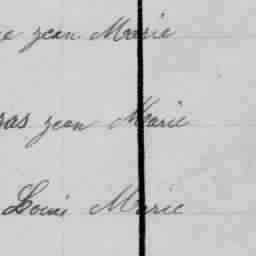 e jean Marie
ras jean Marie
Louis Marie